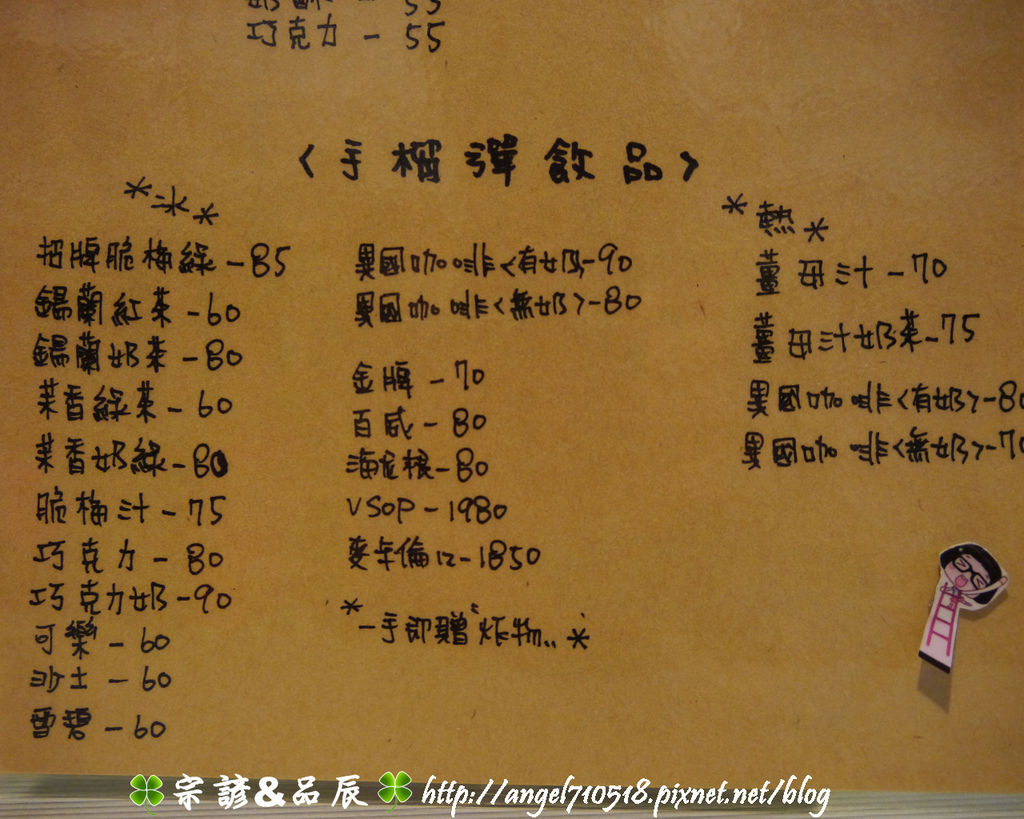 巧克力 - 55
<手榴彈飲品>
*冰*
招牌脆梅綠-85
錫蘭紅茶-60
錫蘭奶茶-80
茉香綠茶-60
茉香奶綠-80
脆梅汁-75
巧克力-80
巧克力奶-90
可樂-60
沙士-60
雪碧-60
異國咖啡<有奶>-90
異國咖啡<無奶>-80
金牌-70
百威-80
海尼根-80
VSOP-1980
麥卡倫12-1850
*一手即贈"炸物..*
*熱*
薑母汁-70
薑母汁奶茶-75
異國咖啡<有奶>-80
異國咖啡<無奶>-70
宗諺&品辰 http://angel710518.pixnet.net/blog